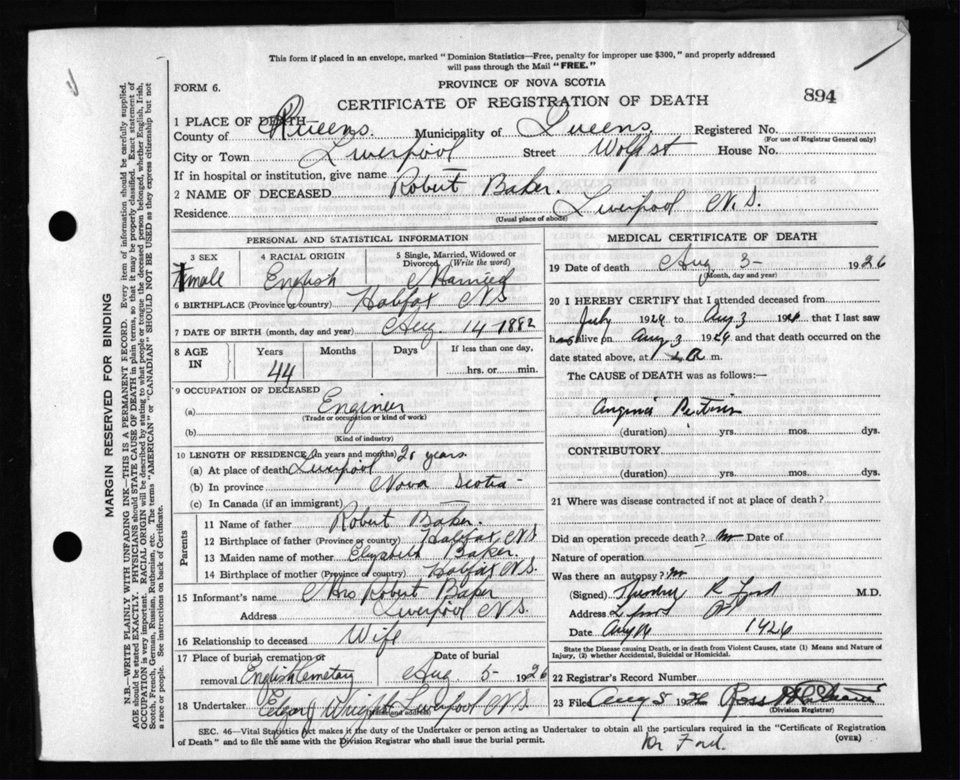 This form if placed in an envelope, marked "Dominion Statistics—Free, penalty for improper use $300," and properly addressed
will pass through the Mail "FREE."
FORM 6.
PROVINCE OF NOVA SCOTIA
CERTIFICATE OF REGISTRATION OF DEATH
894
1 PLACE OF DEATH
County of Queens. Municipality of Queens. Registered No.
(For use of Registrar General only)
City or Town Liverpool Street Wolfe st House No.
If in hospital or institution, give name
2 NAME OF DECEASED Robert Baker.
Residence Liverpool N. S.
(Usual place of abode)
PERSONAL AND STATISTICAL INFORMATION
3 SEX 4 RACIAL ORIGIN 5 Single, Married, Widowed or Divorced (Write the word)
male English Married
6 BIRTHPLACE (Province or country) Halifax N S
7 DATE OF BIRTH (month, day and year) Aug. 14 1882
8 AGE IN Years Months Days If less than one day,
44 hrs. or min.
9 OCCUPATION OF DECEASED
(a) Enginer
(Trade or occupation or kind of work)
(b)
(Kind of industry)
10 LENGTH OF RESIDENCE (in years and months) 20 years
(a) At place of death Liverpool
(b) In province Nova Scotia
(c) In Canada (if an immigrant)
Parents
11 Name of father Robert Baker.
12 Birthplace of father (Province or country) Halifax N S
13 Maiden name of mother Elyzabeth Baker.
14 Birthplace of mother (Province or country) Halifax N S.
15 Informant's name Mrs Robert Baker
Address Liverpool N S.
16 Relationship to deceased Wife
17 Place of burial, cremation or removal Date of burial
English Cemetary Aug 5- 1926
18 Undertaker Edgar J Wright Liverpool N S.
MEDICAL CERTIFICATE OF DEATH
19 Date of death Aug 3- 1926
(Month, day and year)
20 I HEREBY CERTIFY that I attended deceased from
July 1926 to Aug 3 1926 that I last saw
h alive on Aug 3 1926 and that death occurred on the
date stated above, at m.
The CAUSE of DEATH was as follows:—
Angina Pectoris
(duration) yrs. mos. dys.
CONTRIBUTORY.
(duration) yrs. mos. dys.
21 Where was disease contracted if not at place of death?
Did an operation precede death? no Date of
Nature of operation
Was there an autopsy? no
(Signed) R Ford M.D.
Address
Date Aug 1926
State the Disease causing Death, or in death from Violent Causes, state (1) Means and Nature of
Injury, (2) whether Accidental, Suicidal or Homicidal.
22 Registrar's Record Number
23 Filed Aug 5 1926 Ross
(Division Registrar)
SEC. 46—Vital Statistics Act makes it the duty of the Undertaker or person acting as Undertaker to obtain all the particulars required in the "Certificate of Registration
of Death" and to file the same with the Division Registrar who shall issue the burial permit.
(OVER)
Dr Ford.
MARGIN RESERVED FOR BINDING
N.B.—WRITE PLAINLY WITH UNFADING INK—THIS IS A PERMANENT RECORD. Every item of information should be carefully supplied.
AGE should be stated EXACTLY. PHYSICIANS should STATE CAUSE OF DEATH in plain terms, so that it may be properly classified. Exact statement of
OCCUPATION is very important. RACIAL ORIGIN will be described by stating to what people or tongue the deceased person belonged, whether English, Irish,
Scotch, French, German, Russian, Ruthenian, etc. The terms "AMERICAN" or "CANADIAN" SHOULD NOT BE USED as they express citizenship but not
a race or people. See instructions on back of Certificate.